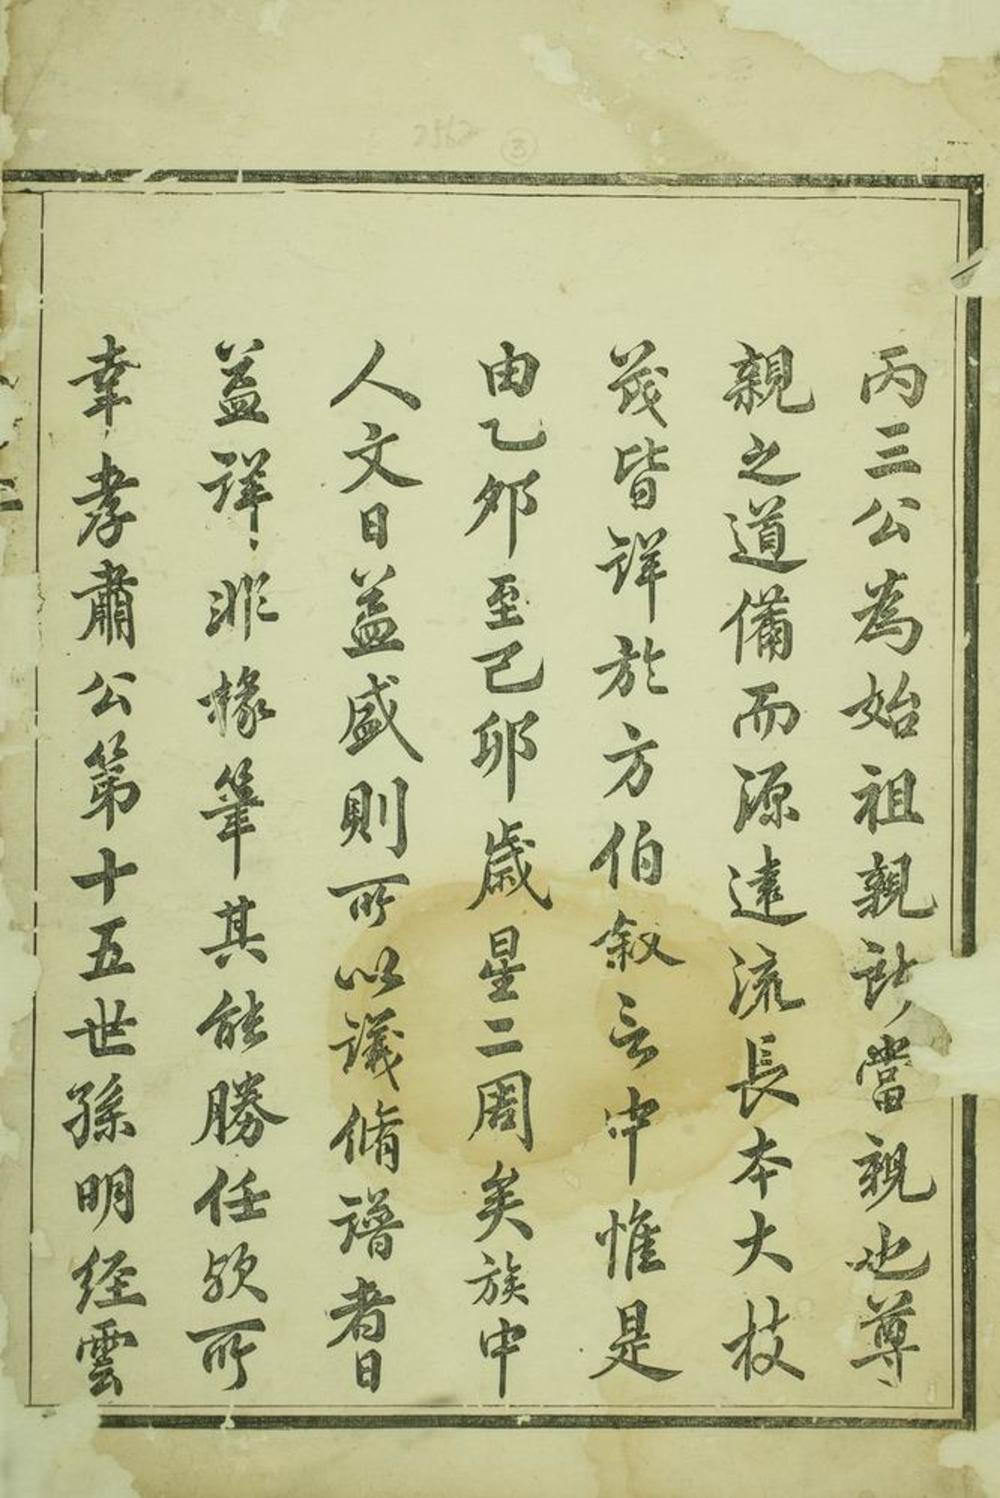 丙三公為始祖親計當親也尊
親之道備而源遠流長本大枝
茂皆詳於方伯叙言中惟是
由乙夘至己卯歲星二周矣族中
人文日益盛則所以議脩譜者日
益詳非椽筆其能勝任欤所
幸孝肅公第十五世孫明經雲